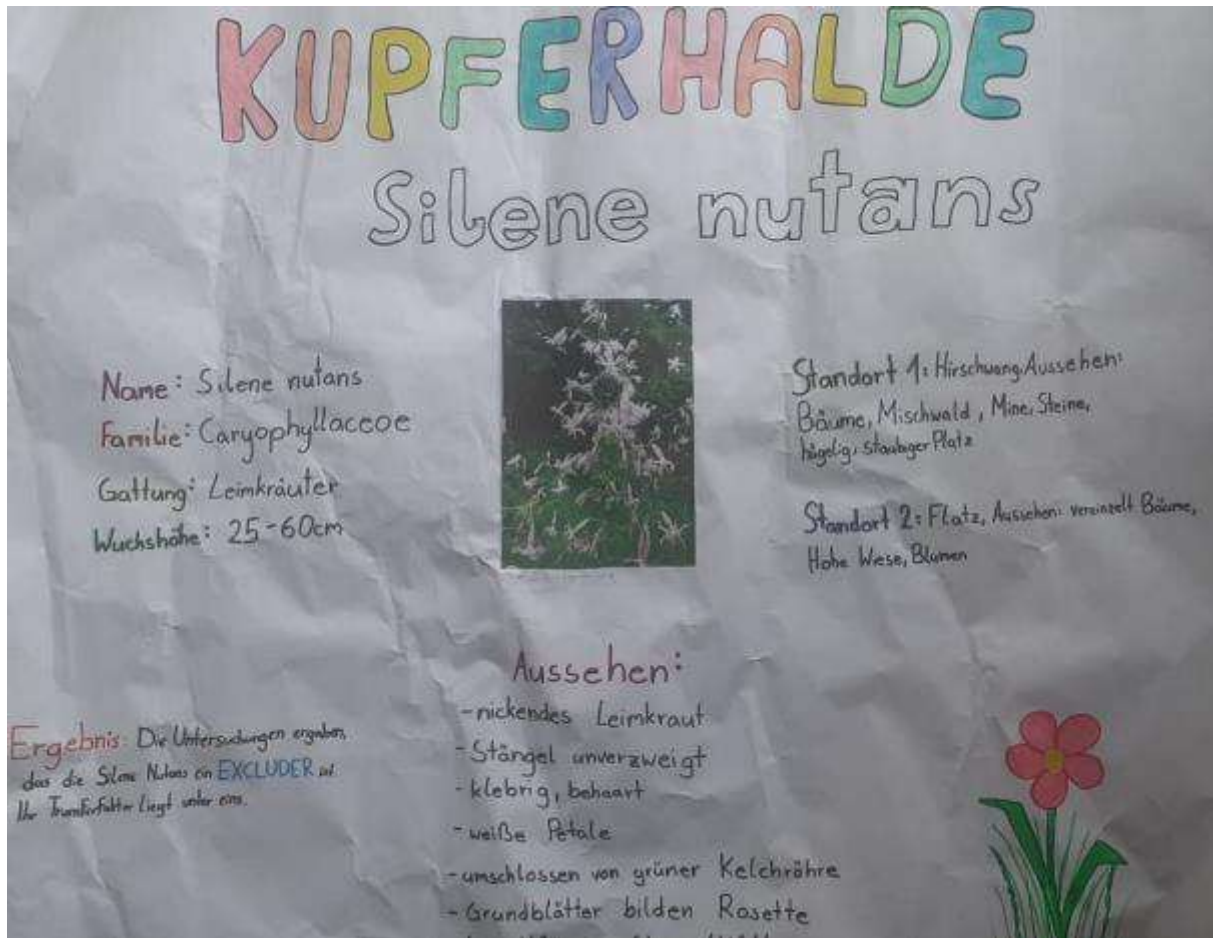 KUPFERHALDE
Silene nutans
Name: Silene nutans
Familie: Caryophyllaceoe
Gattung: Leimkräuter
Wuchshöhe: 25-60cm
Standort 1: Hirschwang, Aussehen:
Bäume, Mischwald, Mine, Steine,
hügelig, Platz
Standort 2: Flatz, Aussehen: vereinzelt Bäume,
Hohe Wiese, Blumen
Aussehen:
-nickendes Leimkraut
-Stängel unverzweigt
-klebrig, behaart
-weiße Petale
-umschlossen von grüner Kelchröhre
-Grundblätter bilden Rosette
Ergebnis: Die Untersuchungen ergaben,
das die Silene Nutans ein EXCLUDER ist.
Ihr Transferfaktor liegt unter eins.